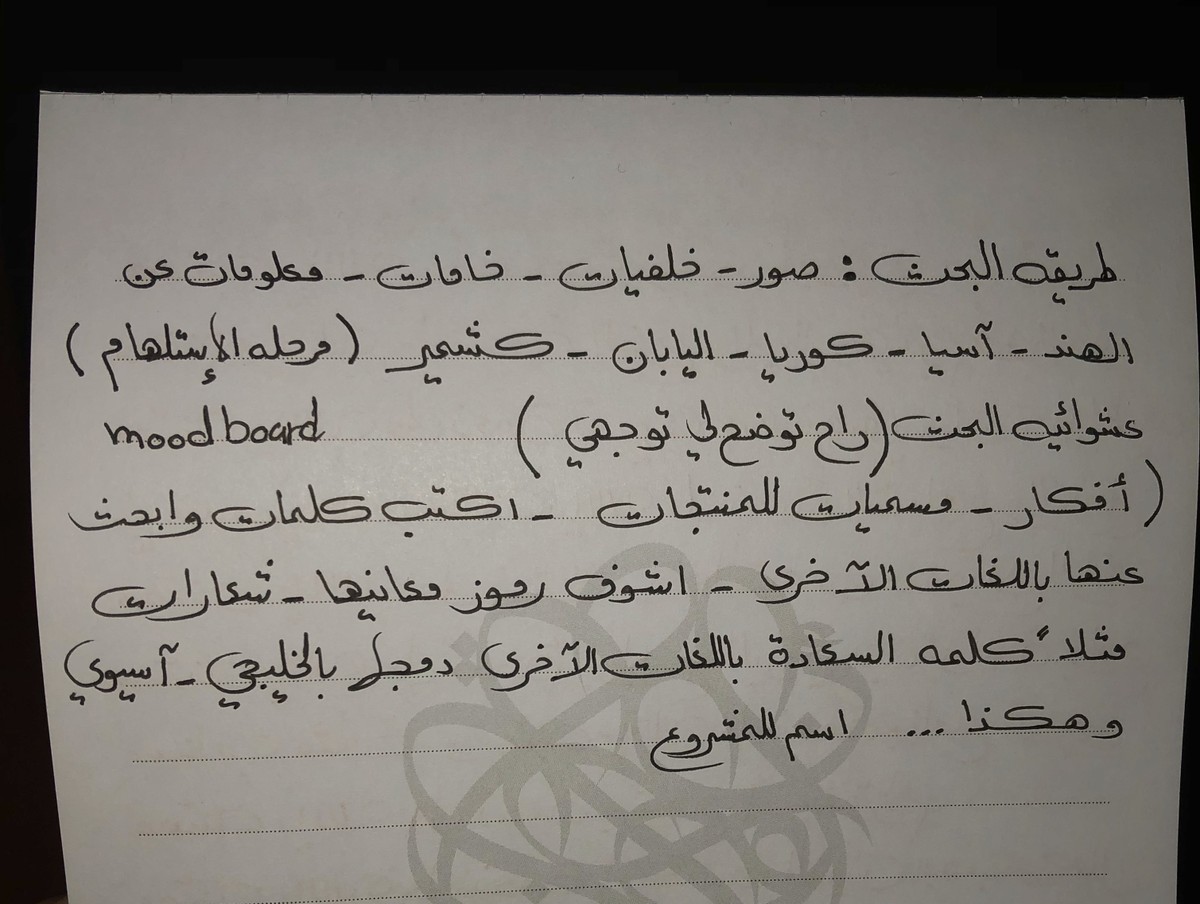 طريقه البحث : صور - خلفيات - خامات - معلومات عن
الهند - آسيا - كوريا - اليابان - كشمير ( مرحله الإستلهام )
عشوائيه البحث ( راح توضح لي توجهي ) mood board
( أفكار - مسميات للمنتجات - اكتب كلمات وابحث
عنها باللغات الآخرى - اشوف رموز معانيها - شعارات
مثلاً كلمه السعادة باللغات الآخرى دمجها بالخليجي - آسيوي
وهكذا ... اسم للمشروع